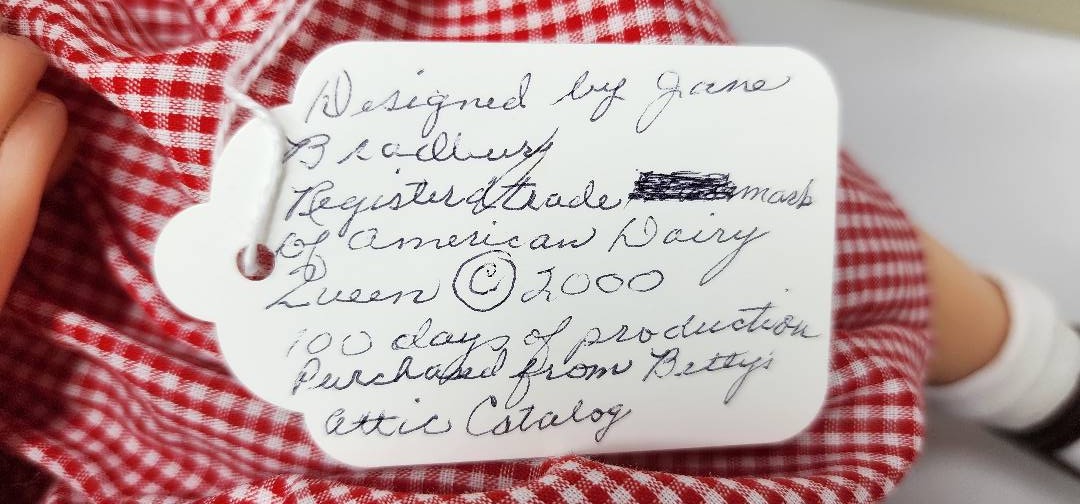 Designed by Jane
Bradbury
Registerd trade mark
of American Dairy
Queen © 2000
100 days of production
Purchased from Betty's
attic Catalog